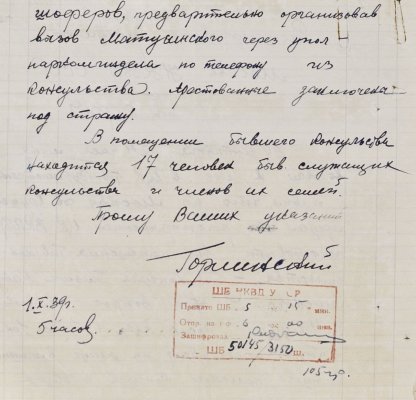 шоферов, предварительно организовав
вызов Матушинского через упол
наркоминдела по телефону из
консульства. Арестованные заключены
под стражу.
В помещении бывшего консульства
находится 17 человек быв. служащих
консульства и членов их семей.
Прошу Ваших указаний
Горлинский
1.X.39г.
5 часов.
ШБ НКВД УССР
Принято ШБ 5 час 15 мин.
Отпр. на 6 час 00 мин.
Зашифровал
ШБ 50145/3150 ш.
105гр.